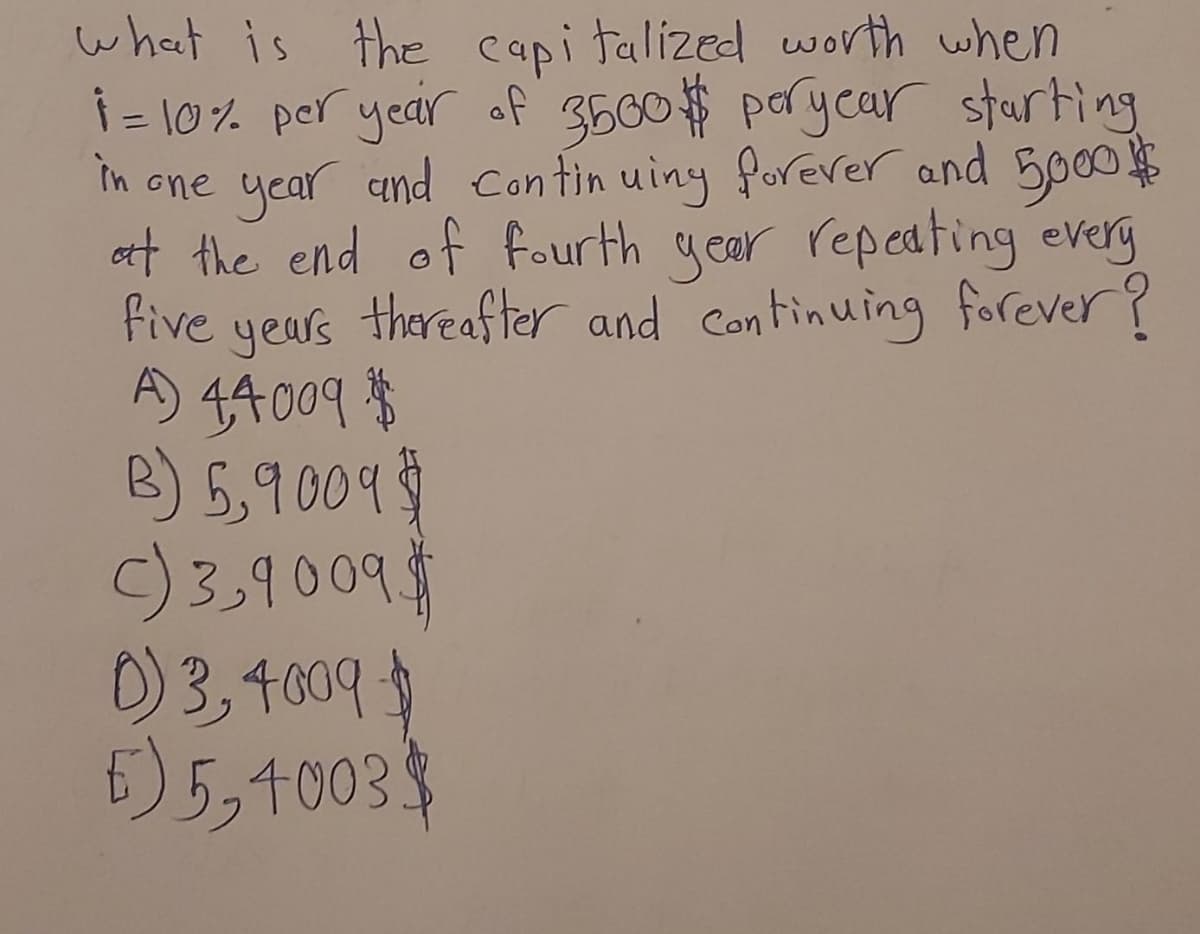 what is the capitalized worth when
i = 10% per year of 3,500$ per year starting
in one year and continuing forever and 5,000$
at the end of fourth year repeating every
five years thereafter and continuing forever?
A) 4,4009 $
B) 5,9009 $
C) 3,9009 $
D) 3,4009 $
E) 5,4003 $